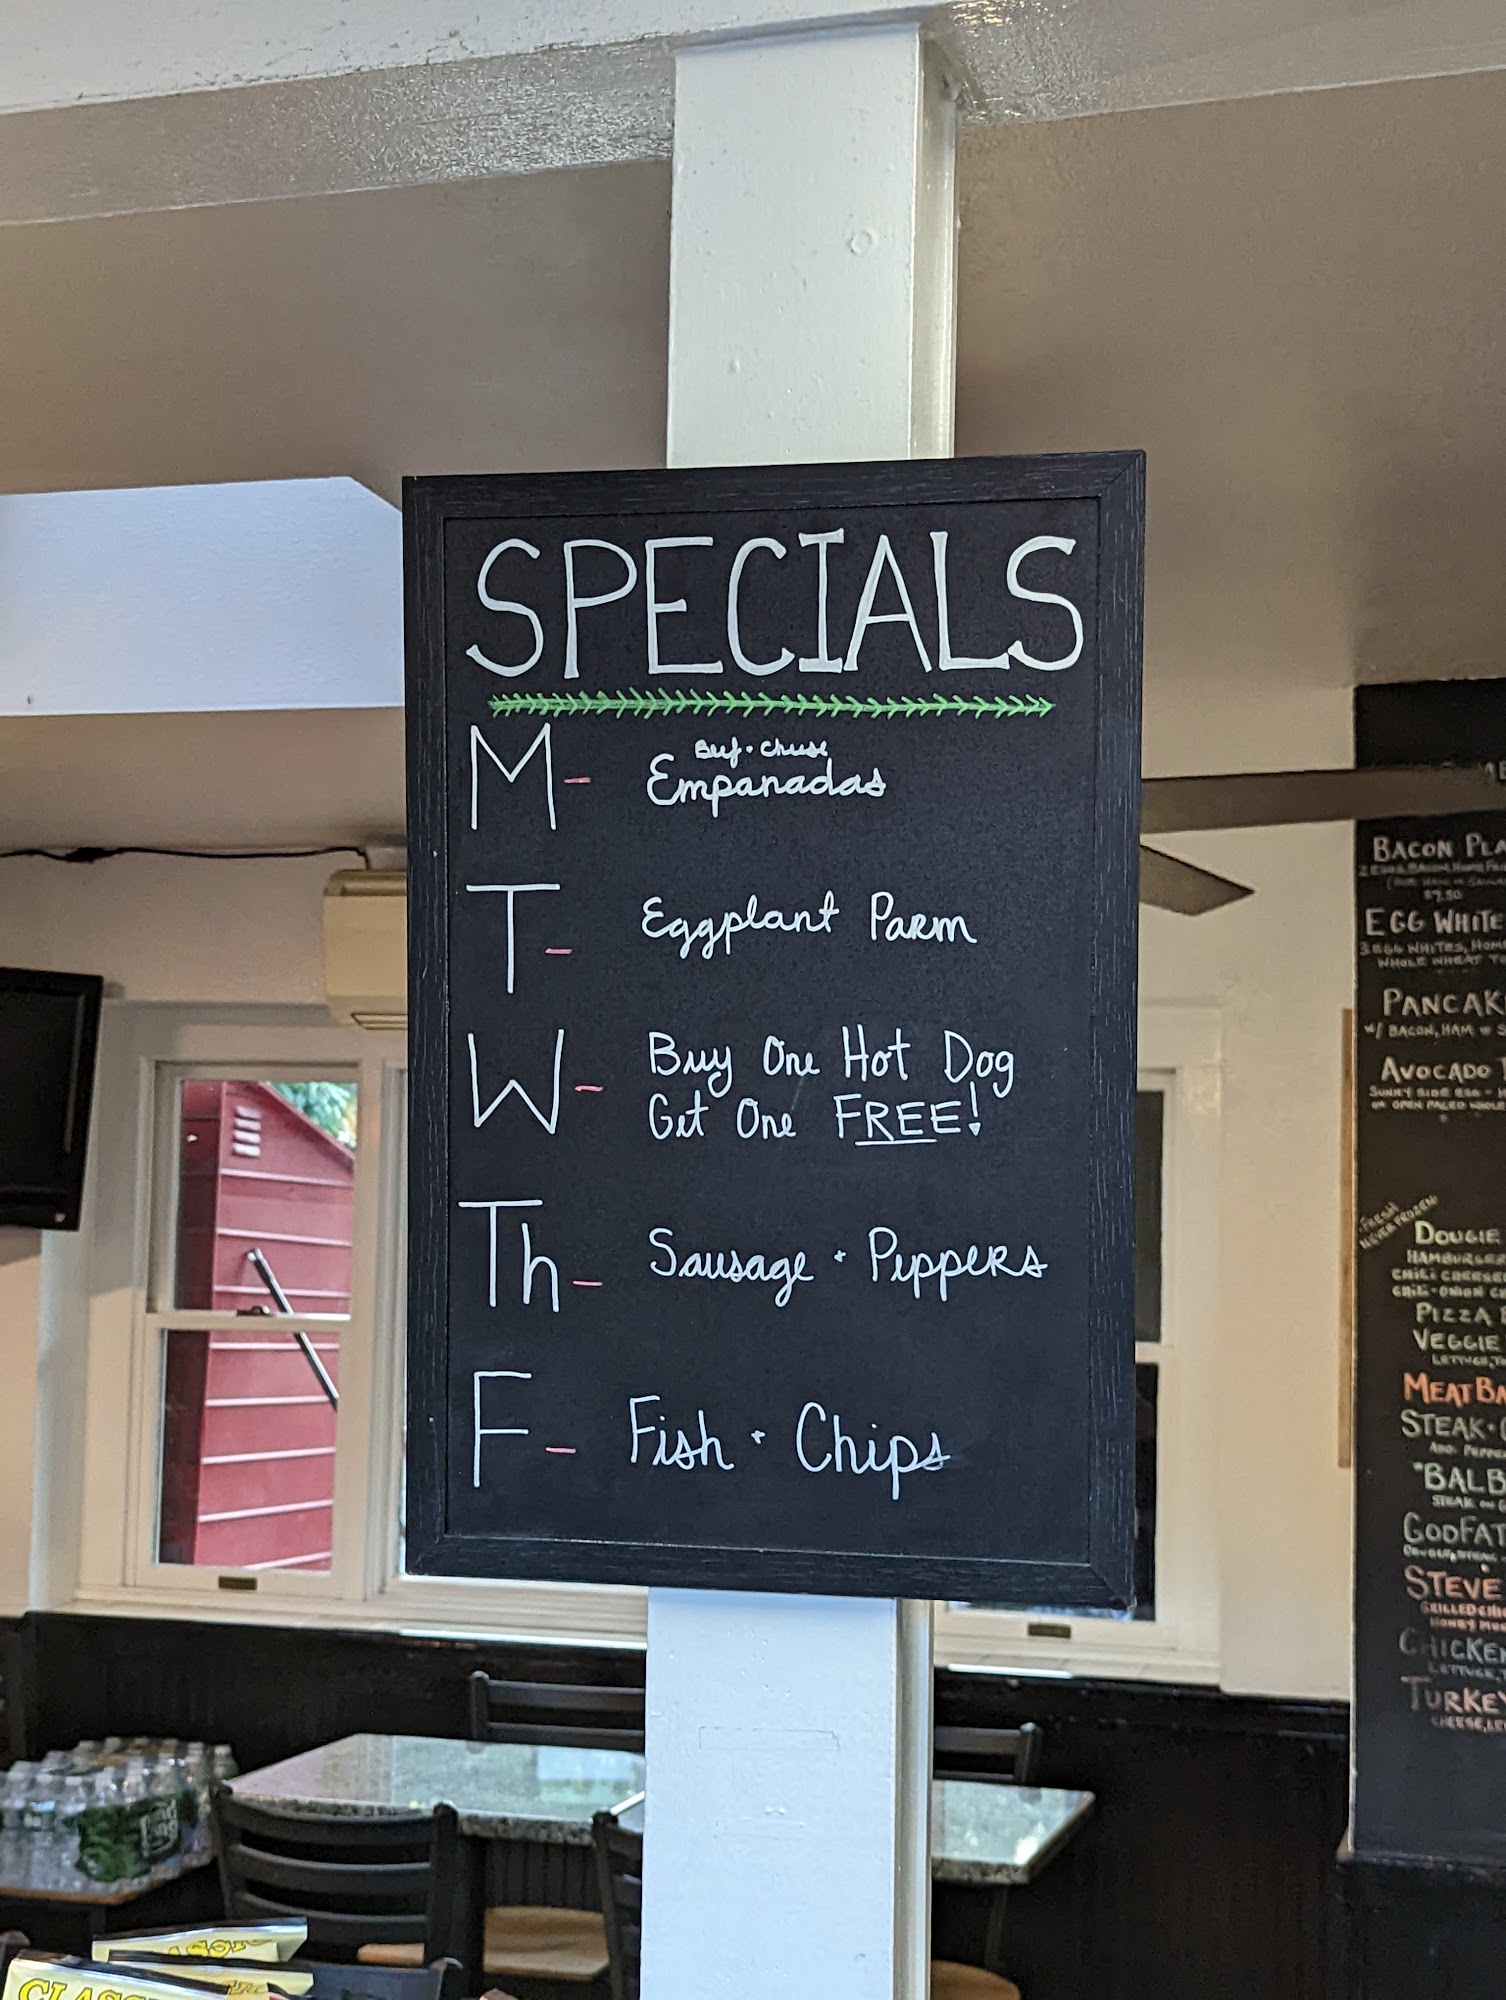 SPECIALS
M - Beef + Cheese
Empanadas
T - Eggplant Parm
W - Buy One Hot Dog
Get One FREE!
Th - Sausage + Peppers
F - Fish + Chips
BACON PLA
$7.50
EGG WHITE
3 EGG WHITES, HOM
WHOLE WHEAT TO
PANCAK
W/ BACON, HAM
AVOCADO
SUNNY SIDE EGG
FRESH
NEVER FROZEN!
DOUGIE
HAMBURGER
CHILI CHEESE
CHILI-ONION
PIZZA
VEGGIE
MEATBA
STEAK
"BALB
GODFAT
STEVE
CHICKEN
TURKEY
CHEESE, LE
CLASS